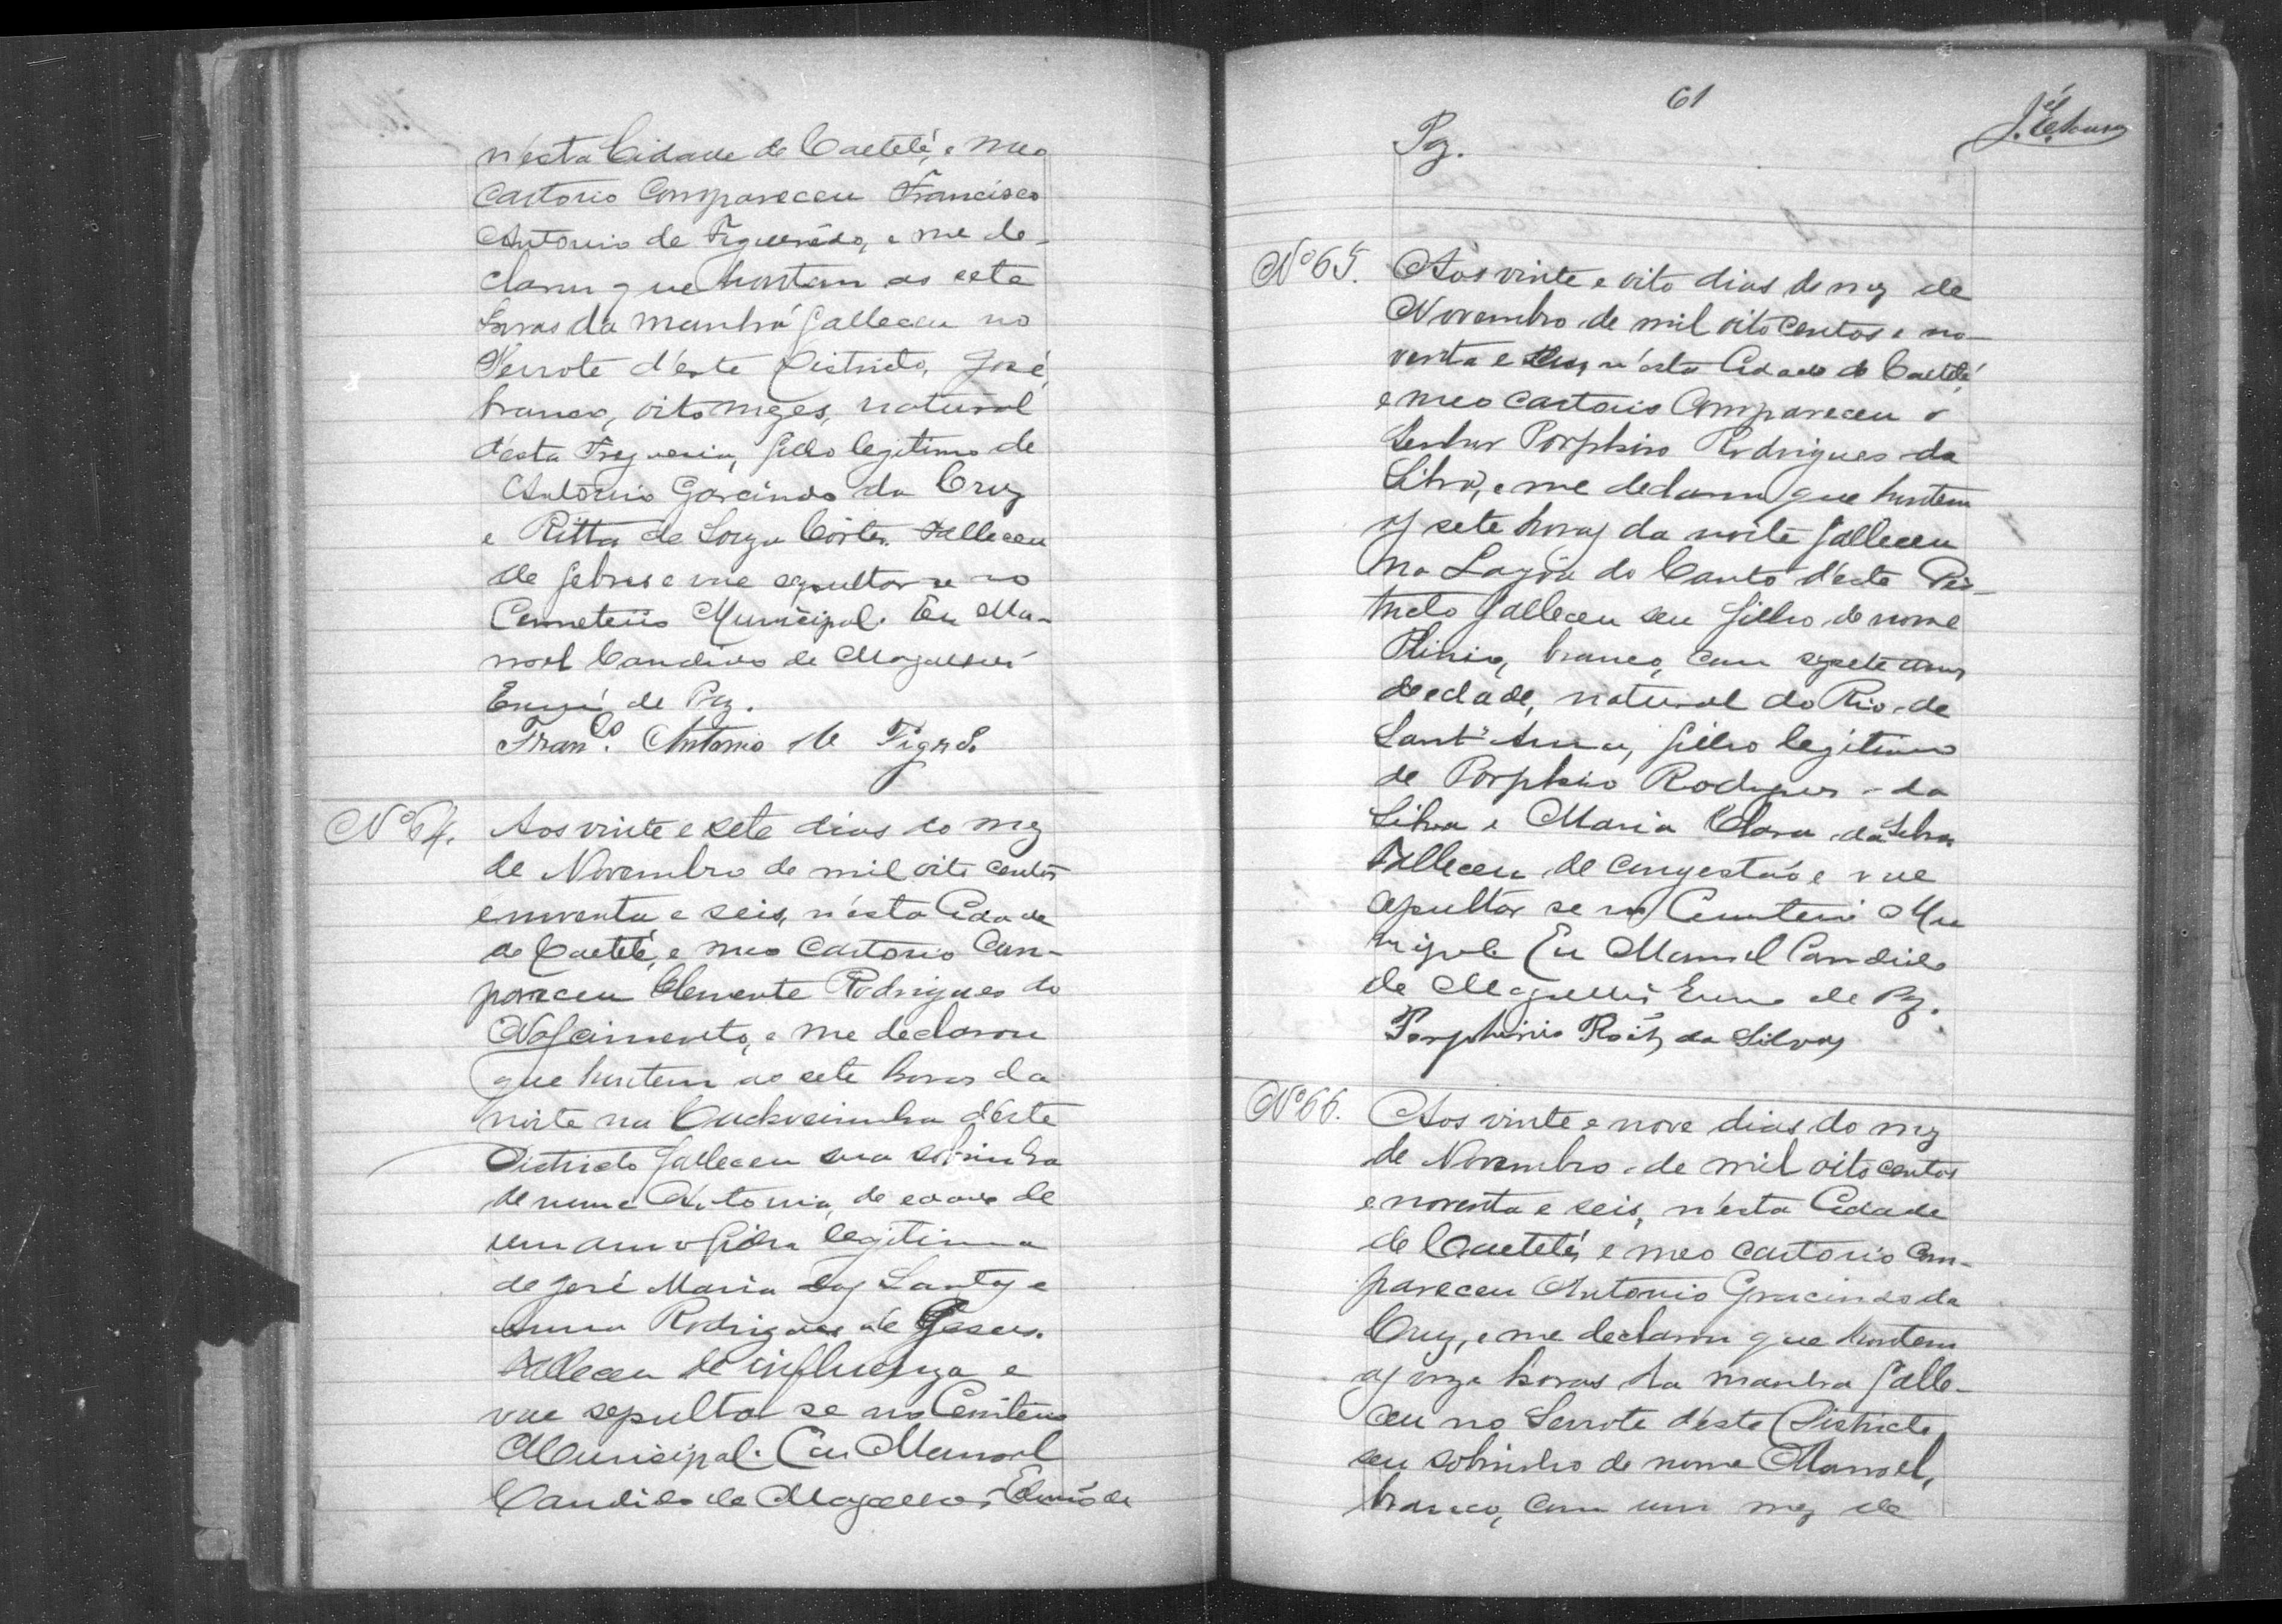 n'esta Cidade de Caeteté, e meo
Cartorio Compareceu Francisco
Antonio de Figueirêdo, e me de-
clarou que hontem as sete
horas da manhã falleceu no
Serrote d'éste Districto, José,
branco, oito mezes, natural
d'ésta Freguesia, filho legitimo de
Antonio Garcindo da Cruz
e Ritta de Souza Côrtes. Falleceu
de febres e vae sepultar se no
Cemeterio Municipal. Eu Ma-
noel Candido de Magalhães
Escrivão de Paz.
Fran.co Antonio de Figrdo.
Nº 64. Aos vinte e sete dias do mez
de Novembro de mil oito centos
e noventa e seis, n'ésta Cidade
de Caeteté, e meo Cartorio Com-
pareceu Clemente Rodrigues do
Nascimento, e me declarou
que hontem as sete horas da
noite na Cachoeirinha d'éste
Districto falleceu sua sobrinha
de nome Antonia, de edade de
um anno filha legitima
de José Maria dos Santos e
Anna Rodrigues de Jesus.
Falleceu de influenza e
vae sepultar se no Cemiterio
Municipal. Eu Manoel
Candido de Magalhães, Escrivão de
61
J. E. Souza
Paz.
Nº 65. Aos vinte e oito dias do mez de
Novembro de mil oito centos e no-
venta e seis, n'ésta Cidade de Caeteté
e meo Cartorio Compareceu o
Senhor Porphirio Rodrigues da
Silva, e me declarou que hontem
as sete horas da noite falleceu
na Lagôa do Canto d'éste Dis-
tricto falleceu seu filho de nome
Plinio, branco, com sete annos
de edade, natural do Rio de
Sant'Anna, filho legitimo
de Porphirio Rodrigues da
Silva e Maria Clara da Silva
Falleceu de congestão e vae
sepultar se no Cemiterio Mu
nicipal. Eu Manoel Candido
de Magalhães Escrivão de Paz.
Porphirio Roiz da Silva
Nº 66. Aos vinte e nove dias do mez
de Novembro de mil oito centos
e noventa e seis, n'ésta Cidade
de Caeteté, e meo Cartorio Com-
pareceu Antonio Gracindo da
Cruz, e me declarou que hontem
as onze horas da manhã falle-
ceu no Serrote d'éste Districto
seu sobrinho de nome Manoel,
branco, com um mez de